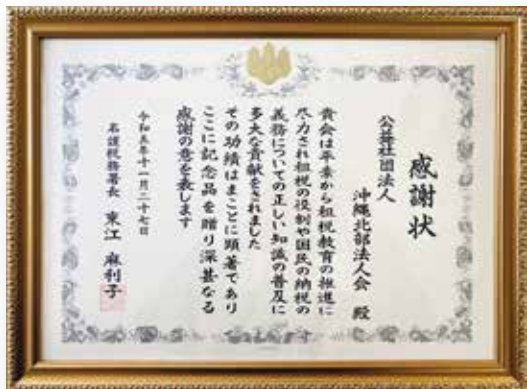 感謝状
公益社団法人
沖縄北部法人会 殿
貴会は平素から租税教育の推進に
尽力され租税の役割や国民の納税の
義務についての正しい知識の普及に
多大な貢献をされました
その功績はまことに顕著であり
ここに記念品を贈り深甚なる
感謝の意を表します
令和五年十一月二十七日
名護税務署長 東江 麻利子